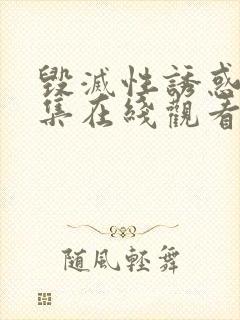 毀滅性誘惑
集在綫觀看
隨風輕舞